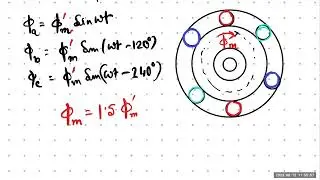 ϕa = ϕ'm sin ωt
ϕb = ϕ'm sin (ωt - 120°)
ϕc = ϕ'm sin (ωt - 240°)
ϕm
ϕm = 1.5 ϕ'm